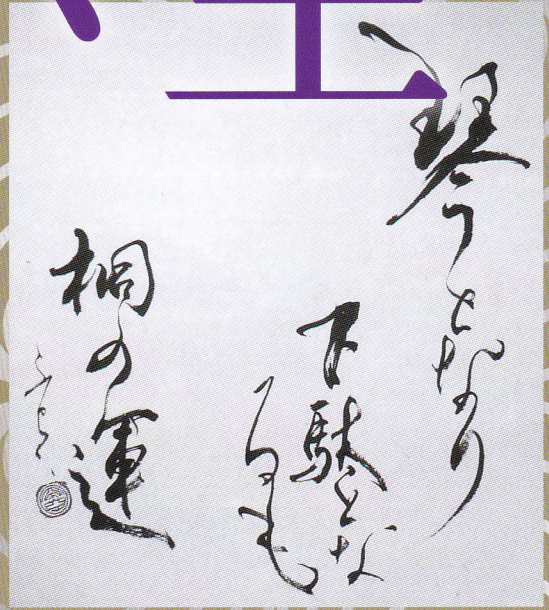 琴となり
下駄とな
るのも
桐の運